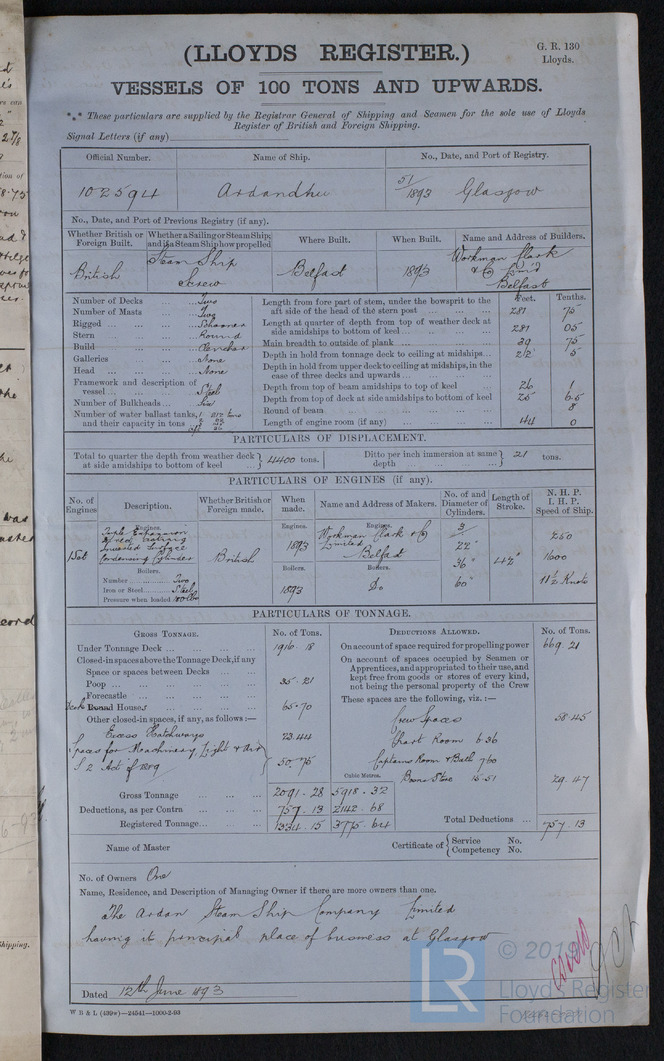 (LLOYDS REGISTER.)
G. R. 130
Lloyds.
VESSELS OF 100 TONS AND UPWARDS.
*** These particulars are supplied by the Registrar General of Shipping and Seamen for the sole use of Lloyds
Register of British and Foreign Shipping.
Signal Letters (if any)
Official Number. Name of Ship. No., Date, and Port of Registry.
102594 Ardandhu 51/1893 Glasgow
No., Date, and Port of Previous Registry (if any).
Whether British or Foreign Built. Whether a Sailing or Steam Ship; and if a Steam Ship how propelled Where Built. When Built. Name and Address of Builders.
British Steam Ship Screw Belfast 1893 Workman Clark & Co Lim'd Belfast
Number of Decks Two
Number of Masts Two
Rigged Schooner
Stern Round
Build Clencher
Galleries None
Head None
Framework and description of vessel Steel
Number of Bulkheads Six
Number of water ballast tanks, and their capacity in tons
Feet. Tenths.
Length from fore part of stem, under the bowsprit to the aft side of the head of the stern post 281 75
Length at quarter of depth from top of weather deck at side amidships to bottom of keel 281 05
Main breadth to outside of plank 39 75
Depth in hold from tonnage deck to ceiling at midships 22 5
Depth in hold from upper deck to ceiling at midships, in the case of three decks and upwards
Depth from top of beam amidships to top of keel 26 1
Depth from top of deck at side amidships to bottom of keel 25 65
Round of beam 8
Length of engine room (if any) 44 0
PARTICULARS OF DISPLACEMENT.
Total to quarter the depth from weather deck at side amidships to bottom of keel 4400 tons. Ditto per inch immersion at same depth 21 tons.
PARTICULARS OF ENGINES (if any).
No. of Engines Description. Whether British or Foreign made. When made. Name and Address of Makers. No. of and Diameter of Cylinders. Length of Stroke. N. H. P. I. H. P. Speed of Ship.
Engines. Engines. Engines.
1 Set Triple Expansion Direct Acting Inverted Surface Condensing Cylinder British 1893 Workman Clark & Co Limited Belfast 3 22" 36" 60" 42" 250 1600 11½ Knots
Boilers. Boilers. Boilers.
Number Two
Iron or Steel Steel 1893 Do
Pressure when loaded 160 lbs
PARTICULARS OF TONNAGE.
GROSS TONNAGE. No. of Tons. DEDUCTIONS ALLOWED. No. of Tons.
Under Tonnage Deck 1916.18
Closed-in spaces above the Tonnage Deck, if any
Space or spaces between Decks
Poop 35.21
Forecastle
Deck Round Houses 65.70
Other closed-in spaces, if any, as follows:—
Excess Hatchways 23.44
Spaces for Machinery, Light & Air
S 2 Act of 1889 50.75
Cubic Metres.
Gross Tonnage 2091.28 5918.32
Deductions, as per Contra 757.13 2142.68
Registered Tonnage 1334.15 3775.64
On account of space required for propelling power 669.21
On account of spaces occupied by Seamen or Apprentices, and appropriated to their use, and kept free from goods or stores of every kind, not being the personal property of the Crew
These spaces are the following, viz.:—
Crew Spaces 58.45
Chart Room 6.36
Captains Room & Bath 7.60
Boons Store 15.51 29.47
Total Deductions 757.13
Name of Master
Certificate of Service No.
Competency No.
No. of Owners One
Name, Residence, and Description of Managing Owner if there are more owners than one.
The Ardan Steam Ship Company Limited
having it principal place of business at Glasgow
Dated 12th June 1893
W B & L (439w)—24541—1000-2-93
LR
© 2019
Lloyd's Register
Foundation